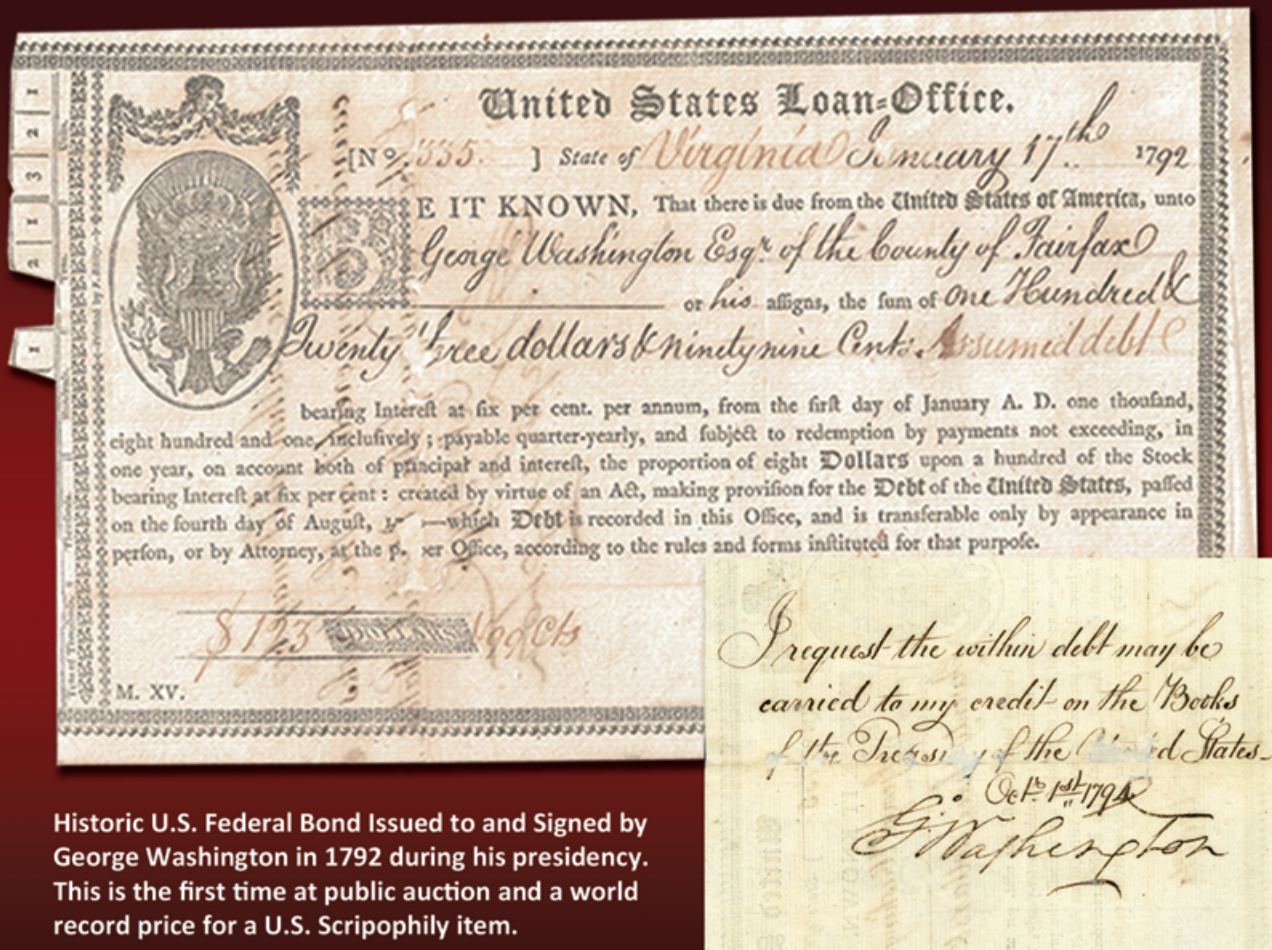 United States Loan=Office.
[No. 335. ] State of Virginia January 17th 1792
BE IT KNOWN, That there is due from the United States of America, unto
George Washington Esqr. of the County of Fairfax
or his aſſigns, the ſum of One Hundred &
Twenty three dollars & ninety nine Cents. Assumed debt
bearing Intereſt at ſix per cent. per annum, from the firſt day of January A. D. one thouſand,
eight hundred and one, incluſively ; payable quarter-yearly, and ſubject to redemption by payments not exceeding, in
one year, on account both of principal and intereſt, the proportion of eight Dollars upon a hundred of the Stock
bearing Intereſt at ſix per cent : created by virtue of an Act, making proviſion for the Debt of the United States, paſſed
on the fourth day of Auguſt, —which Debt is recorded in this Office, and is tranſferable only by appearance in
perſon, or by Attorney, at the p. er Office, according to the rules and forms inſtituted for that purpoſe.
$ 123 DOLLARS 99 Cts
M. XV.
1
2
3
1
2
1
I request the within debt may be
carried to my credit on the Books
of the Treasury of the United States
Octr. 1st 1794
G. Washington
Historic U.S. Federal Bond Issued to and Signed by
George Washington in 1792 during his presidency.
This is the first time at public auction and a world
record price for a U.S. Scripophily item.